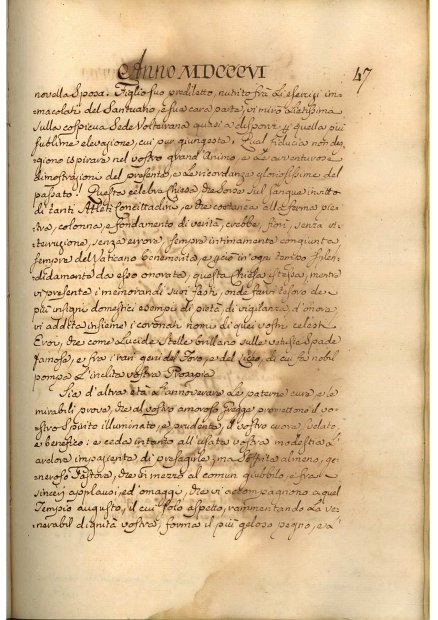 Anno MDCCCVI
47
novella Sposa. Figlio suo prediletto, nutrito frà li esercizi im-
macolati del Santuario, e sua cara parte, vi mirò lietissima
sulla cospicua Sede Volterrana quasi a disporvi a quella più
sublime elevazione, cui pur giungeste. Qual fiducia non deg-
giono ispirare nel vostro grand'Animo, e le avventurose
dimostrazioni del presente, e le ricordanze gloriosissime del
passato! Questa celebre Chiesa che sorse sul sangue invitto
di tanti Atleti Concittadini, e che costanza alla ferma pie-
tra, colonna, e fondamento di verità, crebbe, fiorì, senza in-
terruzione, senza errore, sempre intimamente congiunta,
sempre del Vaticano benemerita, e perciò in ogni tempo splen-
didamente da esso onorata, questa Chiesa istessa, mentre
vi presenta i memorandi suoi fasti, onde farvi tesoro de
più insigni domestici esempi di pietà, di vigilanza, d'onore
vi addita insieme i coronati nomi di quei vostri celesti
Eroi, che come lucide Stelle brillano sulle vetuste Spade
famose, e fra i rari geni del Foro, e del Liceo, di cui fà nobil
pompa l'inclita vostra Prosapia.
Sia d'altra età l'annoverare le paterne cure, e le
mirabili prove, che al vostro amoroso Gregge promettono il vo-
stro Spirito illuminato, e prudente, il vostro cuore zelato,
e benefico: e cedo intanto all'usata vostra modestia l'
ardore impaziente di presagirle; ma soffrite almeno, ge-
neroso Pastore, che in mezzo al comun giubbilo, e fra i
sinceri applausi, ed omaggi, che vi accompagnano a quel
Tempio augusto, il cui solo aspetto, rammentando la ve-
nerabil dignità vostra, forma il più geloso pegno, e a'